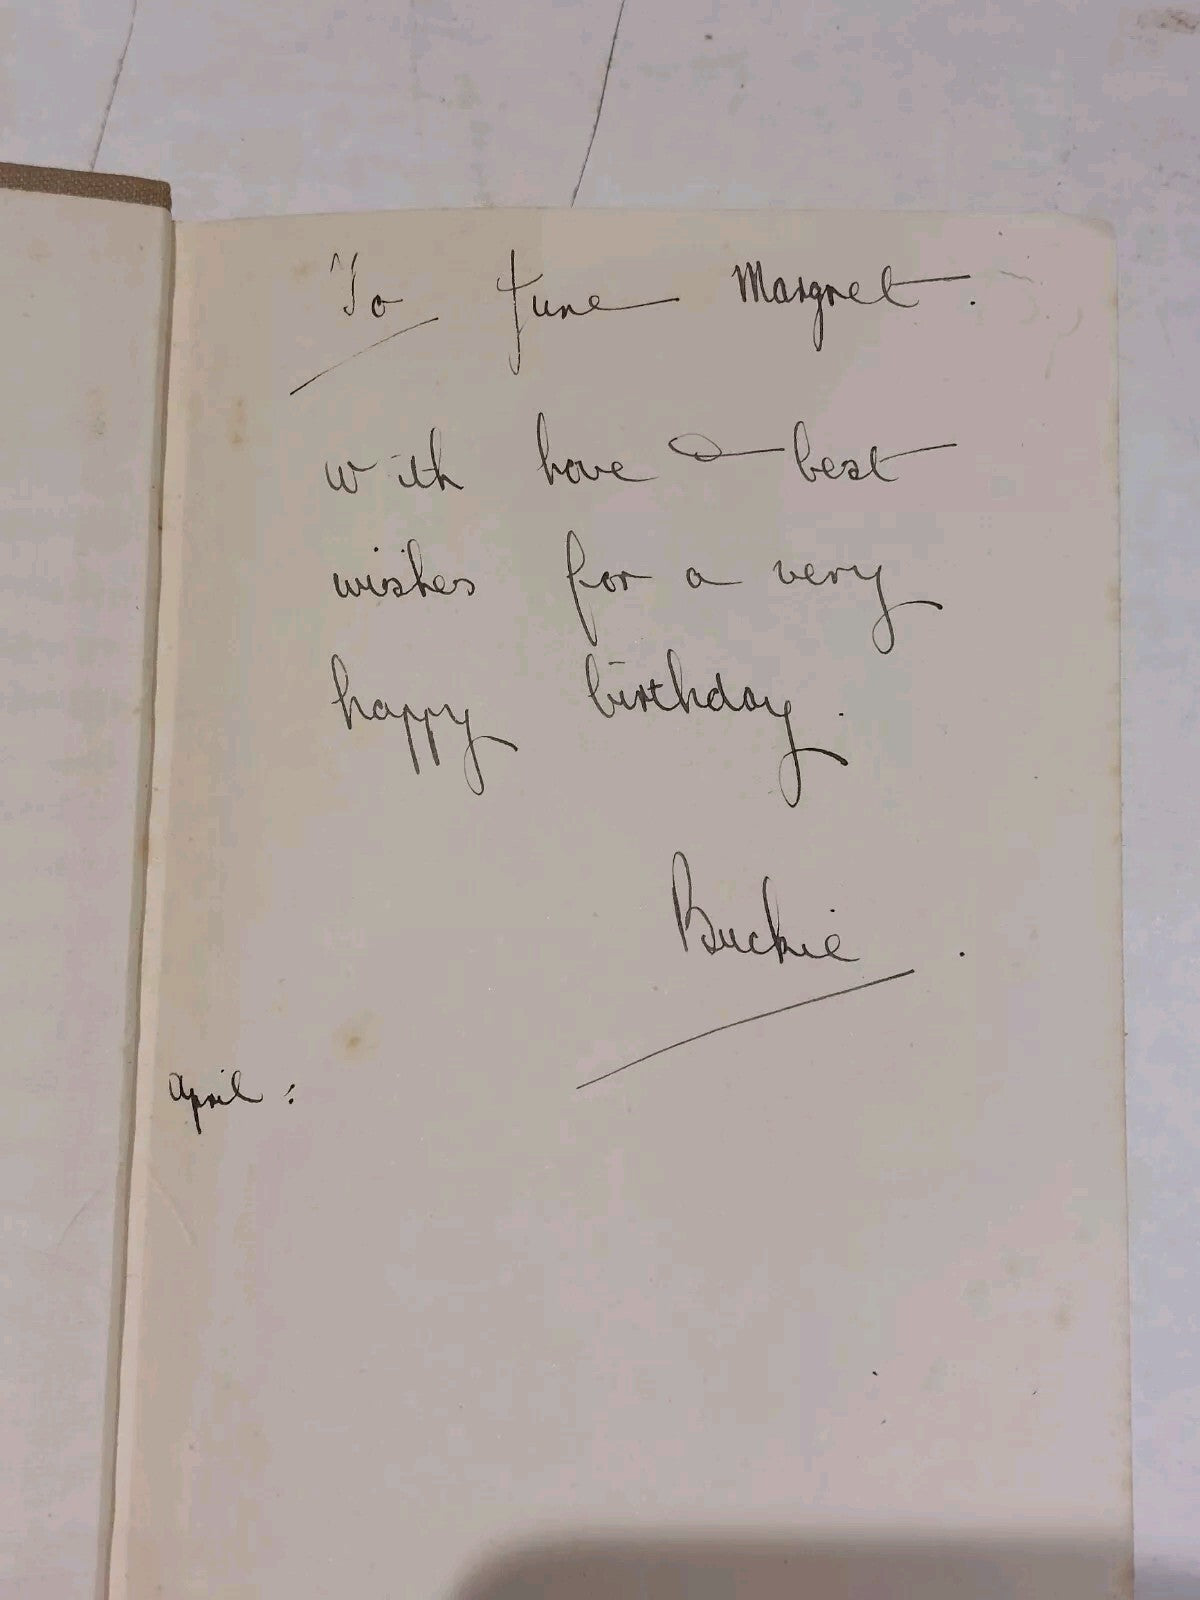 To June Margret.
with love & best
wishes for a very
happy birthday.
Buckie.
April :